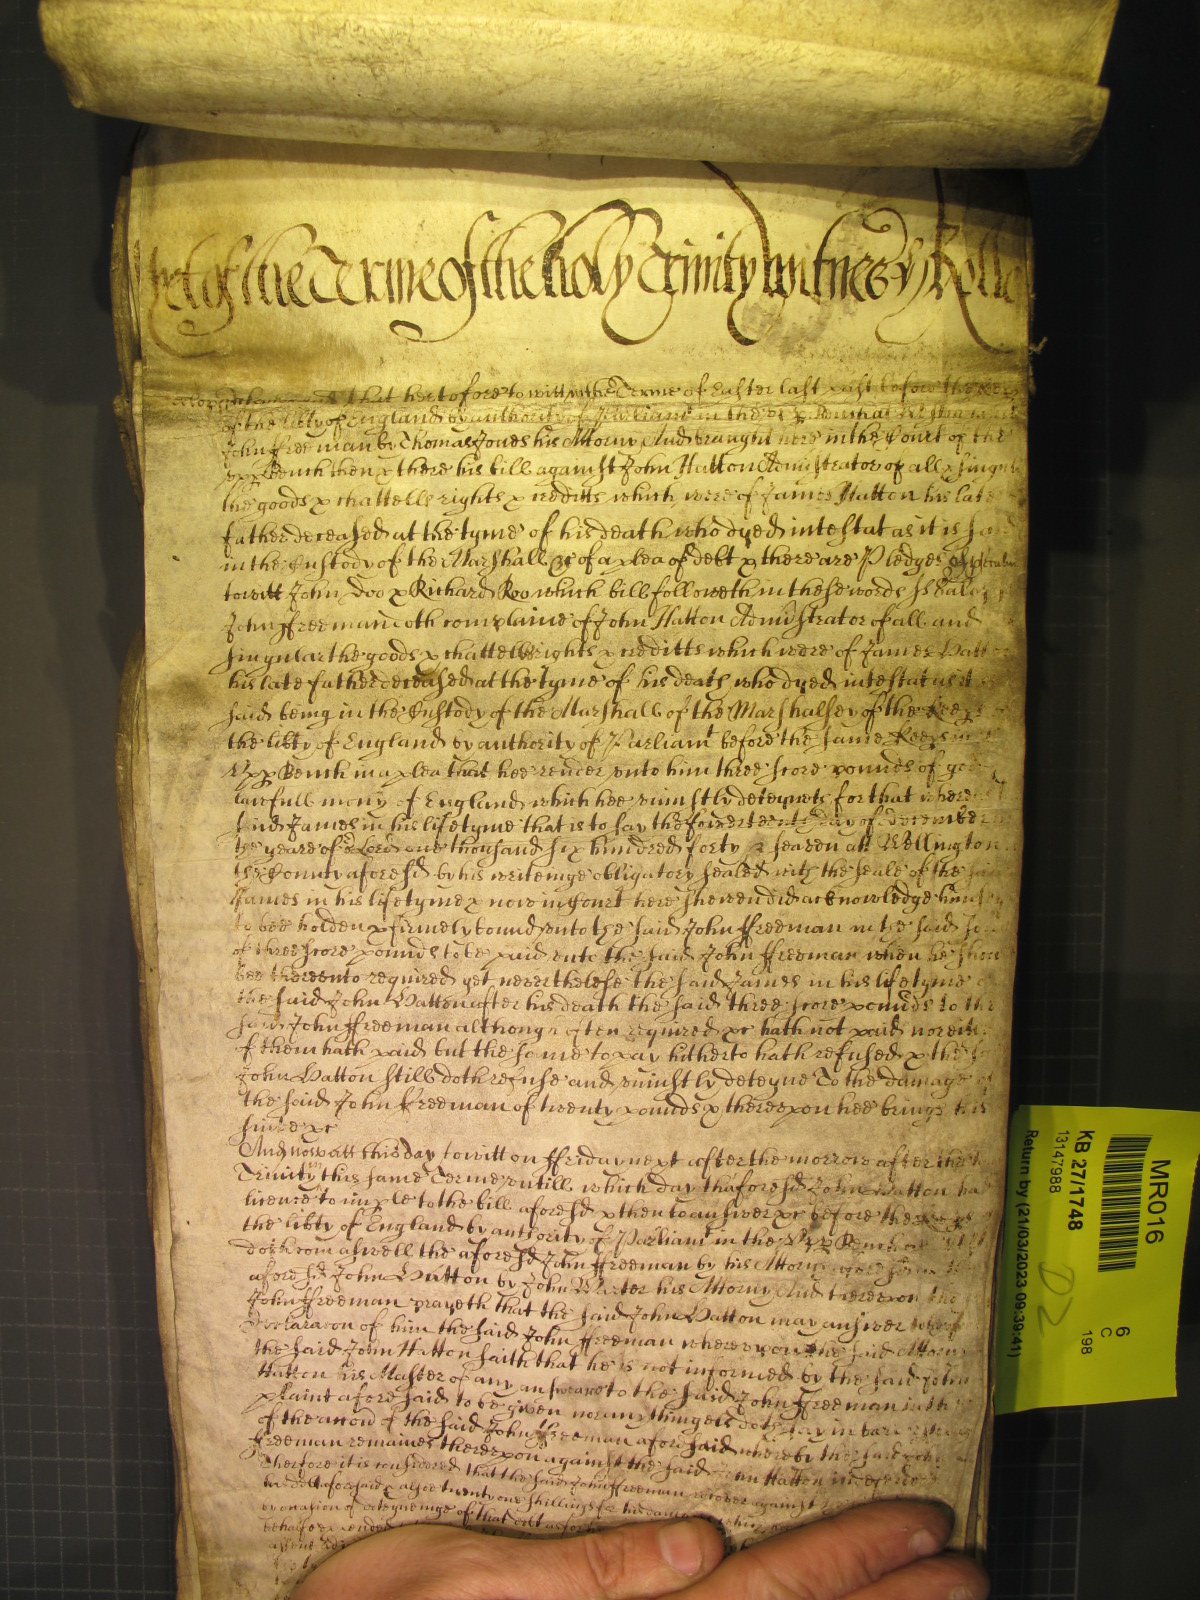 yet of the Terme of the holy Trinity witnes H Rolle
that heretofore to witt in the Terme of Easter last past before the Keeps
of the lib̃ty of England by authority of Parliam̃t in the
John ffreeman by Thomas Jones his Attorny And brought here in the Court of the
upp Bench then & there his bill against John Hatton Admĩstrator of all & singuler
the goods & chattells rights & creditts which were of James Hatton his late
father deceased at the tyme of his death who dyed intestat as it is said
in the Custody of the Marshall &c of a plea of debt & there are Pledges of
towitt John Doo & Richard Roo which bill followeth in these words ss
John ffreeman doth complaine of John Hatton Admĩstrator of all and
singular the goods & chattells rights & creditts which were of James Hatton
his late father deceased at the tyme of his death who dyed intestat as it is
said being in the Custody of the Marshall of the Marshalsey of the Keeps
the lib̃ty of England by authority of Parliam̃t before the same Keeps in
Upp Bench in a plea that hee render unto him three score pounds of good
lawfull mony of England which hee uniustly deteynets for that whereas
said James in his life tyme that is to say the fowerteenth day of December
the yeare of o Lord one thousand six hundred forty & seaven att Wellington
the County aforesd by his writeinge obligatory sealed with the seale of the said
James in his life tyme & now in Court here shewen did acknowledge himself
to bee holden & firmely bound unto the said John ffreeman in the said
of three score pounds to be paid unto the said John ffreeman when he should
bee thereunto required yet neverthelesse the said James in his life tyme
the said John Hatton after his death the said three score pounds to the
said John ffreeman although often required &c hath not paid nor eith
of them hath paid but the same to pay hitherto hath refused & the
John Hatton still doth refuse and uniustly deteyne To the damage of
the said John ffreeman of twenty pounds & thereupon hee brings this
suite &c
And now att this day to witt on ffriday next after the morrow after the
Trinity in this same Terme untill which day the aforesd John Hatton had
licence to imple to the bill aforesd & then to answer &c before the Keeps
the lib̃ty of England by authority of Parliam̃t in the Upp Bench
doth com aswell the aforesd John ffreeman by his Attorny aforesd as the
aforesd John Hatton by John his Attorny And thereupon the
John ffreeman prayeth that the said John Hatton may answer to the
declaracon of him the said John ffreeman whereupon the said Attorny
the said John Hatton saith that he is not informed by the said John
Hatton his Master of any answeare to the said John ffreeman in the
plaint aforesaid to be given nor any thinge doth say in barr
of the accon of the said John ffreeman aforesaid whereby the said John
ffreeman remaines thereupon against the said John Hatton
Therfore it is considered that the said John ffreeman recover against
debt aforesaid & alsoe twenty one shillings for his damages which
by occasion of deteyneinge of that debt asfor
behalfe expended
MR016
KB 27/1748
13147988
Return by (21/03/2023 09:39:41)
6
C
198
D2